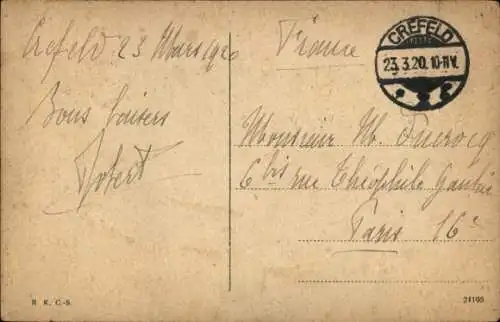 Crefeld 23 Mars 1920
Bons baisers
Robert
France
CREFELD
23.3.20. 10-11 V.
Monsieur M.
6 bis rue Théophile Gautier
Paris 16e
R. K. C.-S.
24165